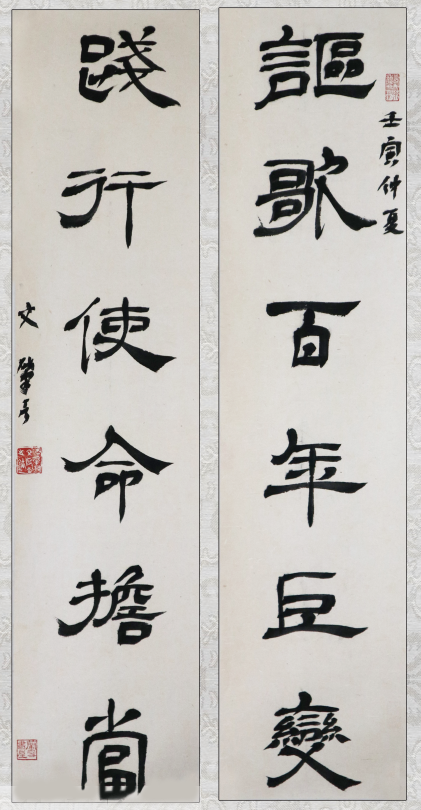 壬寅仲夏
謳歌百年巨變
踐行使命擔當
文